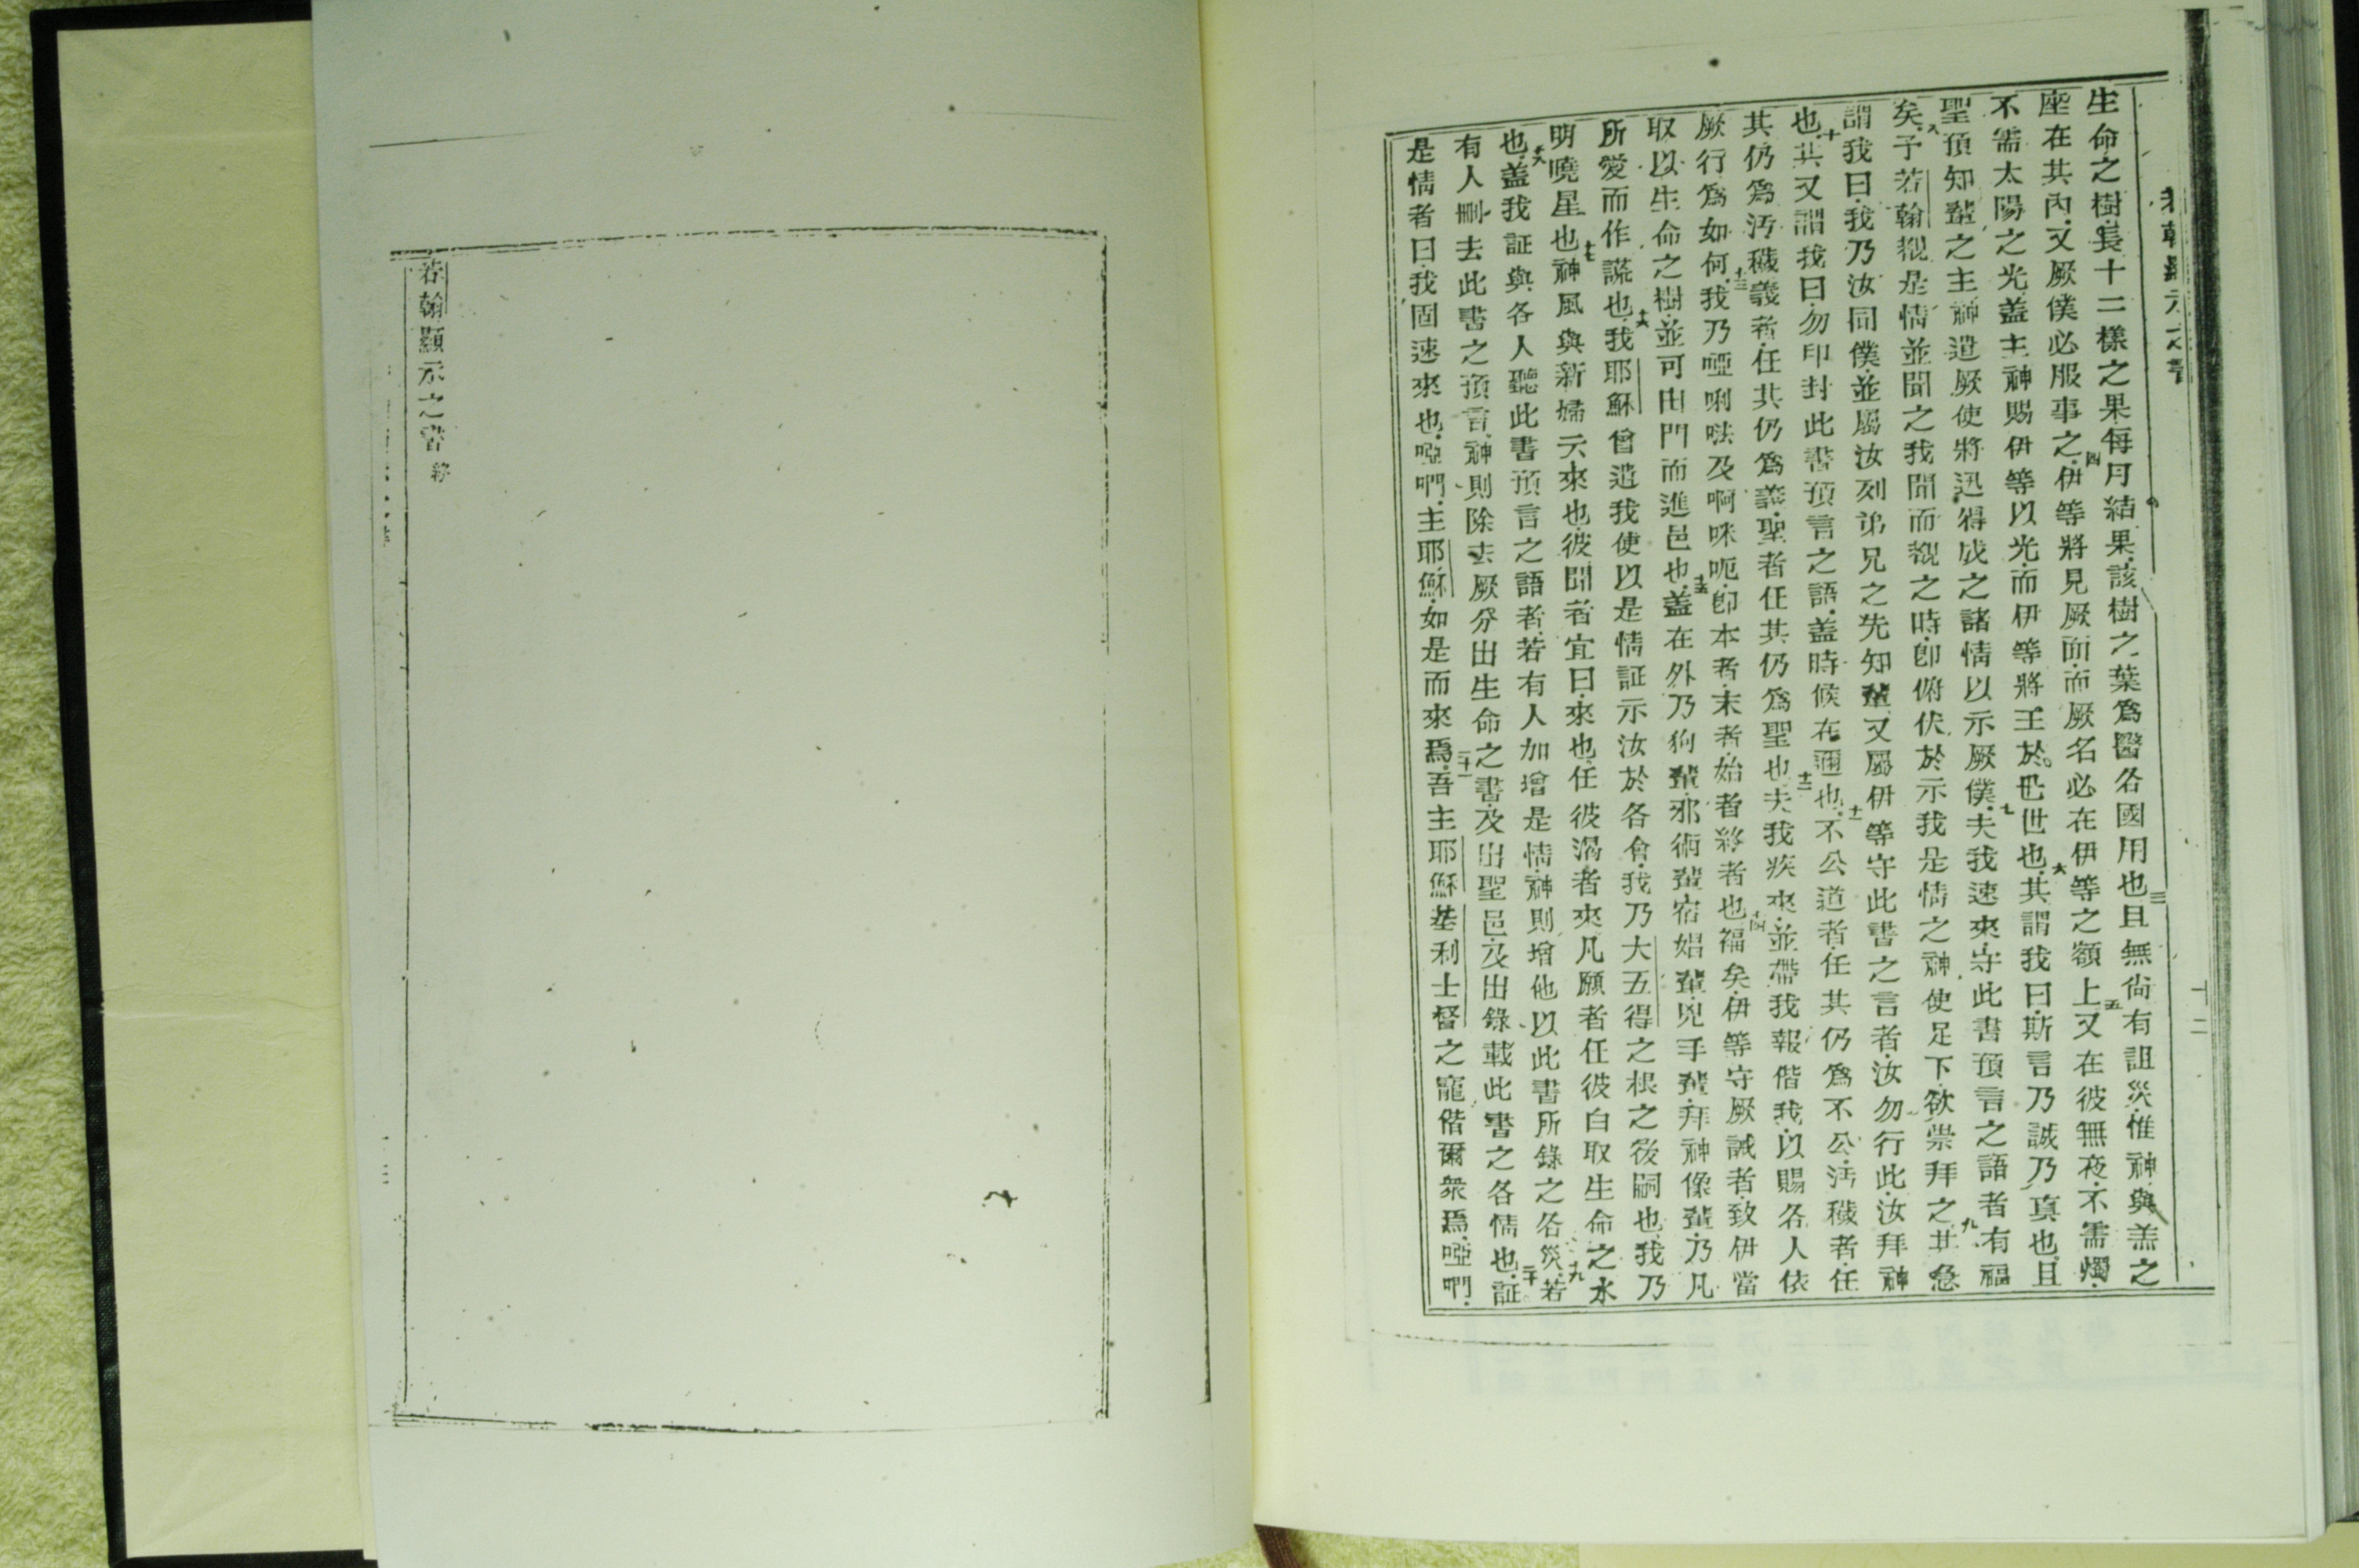 若翰顯示之書
十二
生命之樹長十二樣之果每月結果該樹之葉爲醫各國用也三且無尚有詛災惟神與羔之
座在其內又厥僕必服事之四伊等將見厥面而厥名必在伊等之額上五又在彼無夜不需燭
不需太陽之光盖主神賜伊等以光而伊等將王於世世也六其謂我曰斯言乃誠乃真也且
聖預知輩之主神遣厥使將迅得成之諸情以示厥僕七夫我速來守此書預言之語者有福
矣八予若翰覩是情並聞之我聞而覩之時卽俯伏於示我是情之神使足下欲崇拜之九其急
謂我曰我乃汝同僕並屬汝列弟兄之先知輩又屬伊等守此書之言者汝勿行此汝拜神
也十其又謂我曰勿印封此書預言之語盖時候在邇也十一不公道者任其仍爲不公汚穢者任
其仍爲汚穢義者任其仍爲義聖者任其仍爲聖也十二夫我疾來並帶我報偕我以賜各人依
厥行爲如何十三我乃啞唎呿及啊咪呃卽本者末者始者終者也十四福矣伊等守厥誡者致伊當
取以生命之樹並可由門而進邑也十五盖在外乃狗輩邪術輩宿娼輩兇手輩拜神像輩乃凡
所愛而作謊也十六我耶穌曾遣我使以是情証示汝於各會我乃大五得之根之後嗣也我乃
明曉星也十七神風與新婦云來也彼聞者宜曰來也任彼渴者來凡願者任彼白取生命之水
也十八盖我証與各人聽此書預言之語者若有人加增是情神則增他以此書所錄之各災十九若
有人刪去此書之預言神則除去厥分出生命之書及出聖邑及出錄載此書之各情也二十証
是情者曰我固速來也啞𠵽主耶穌如是而來焉二十一吾主耶穌基利士督之寵偕爾衆焉啞𠵽
若翰顯示之書終